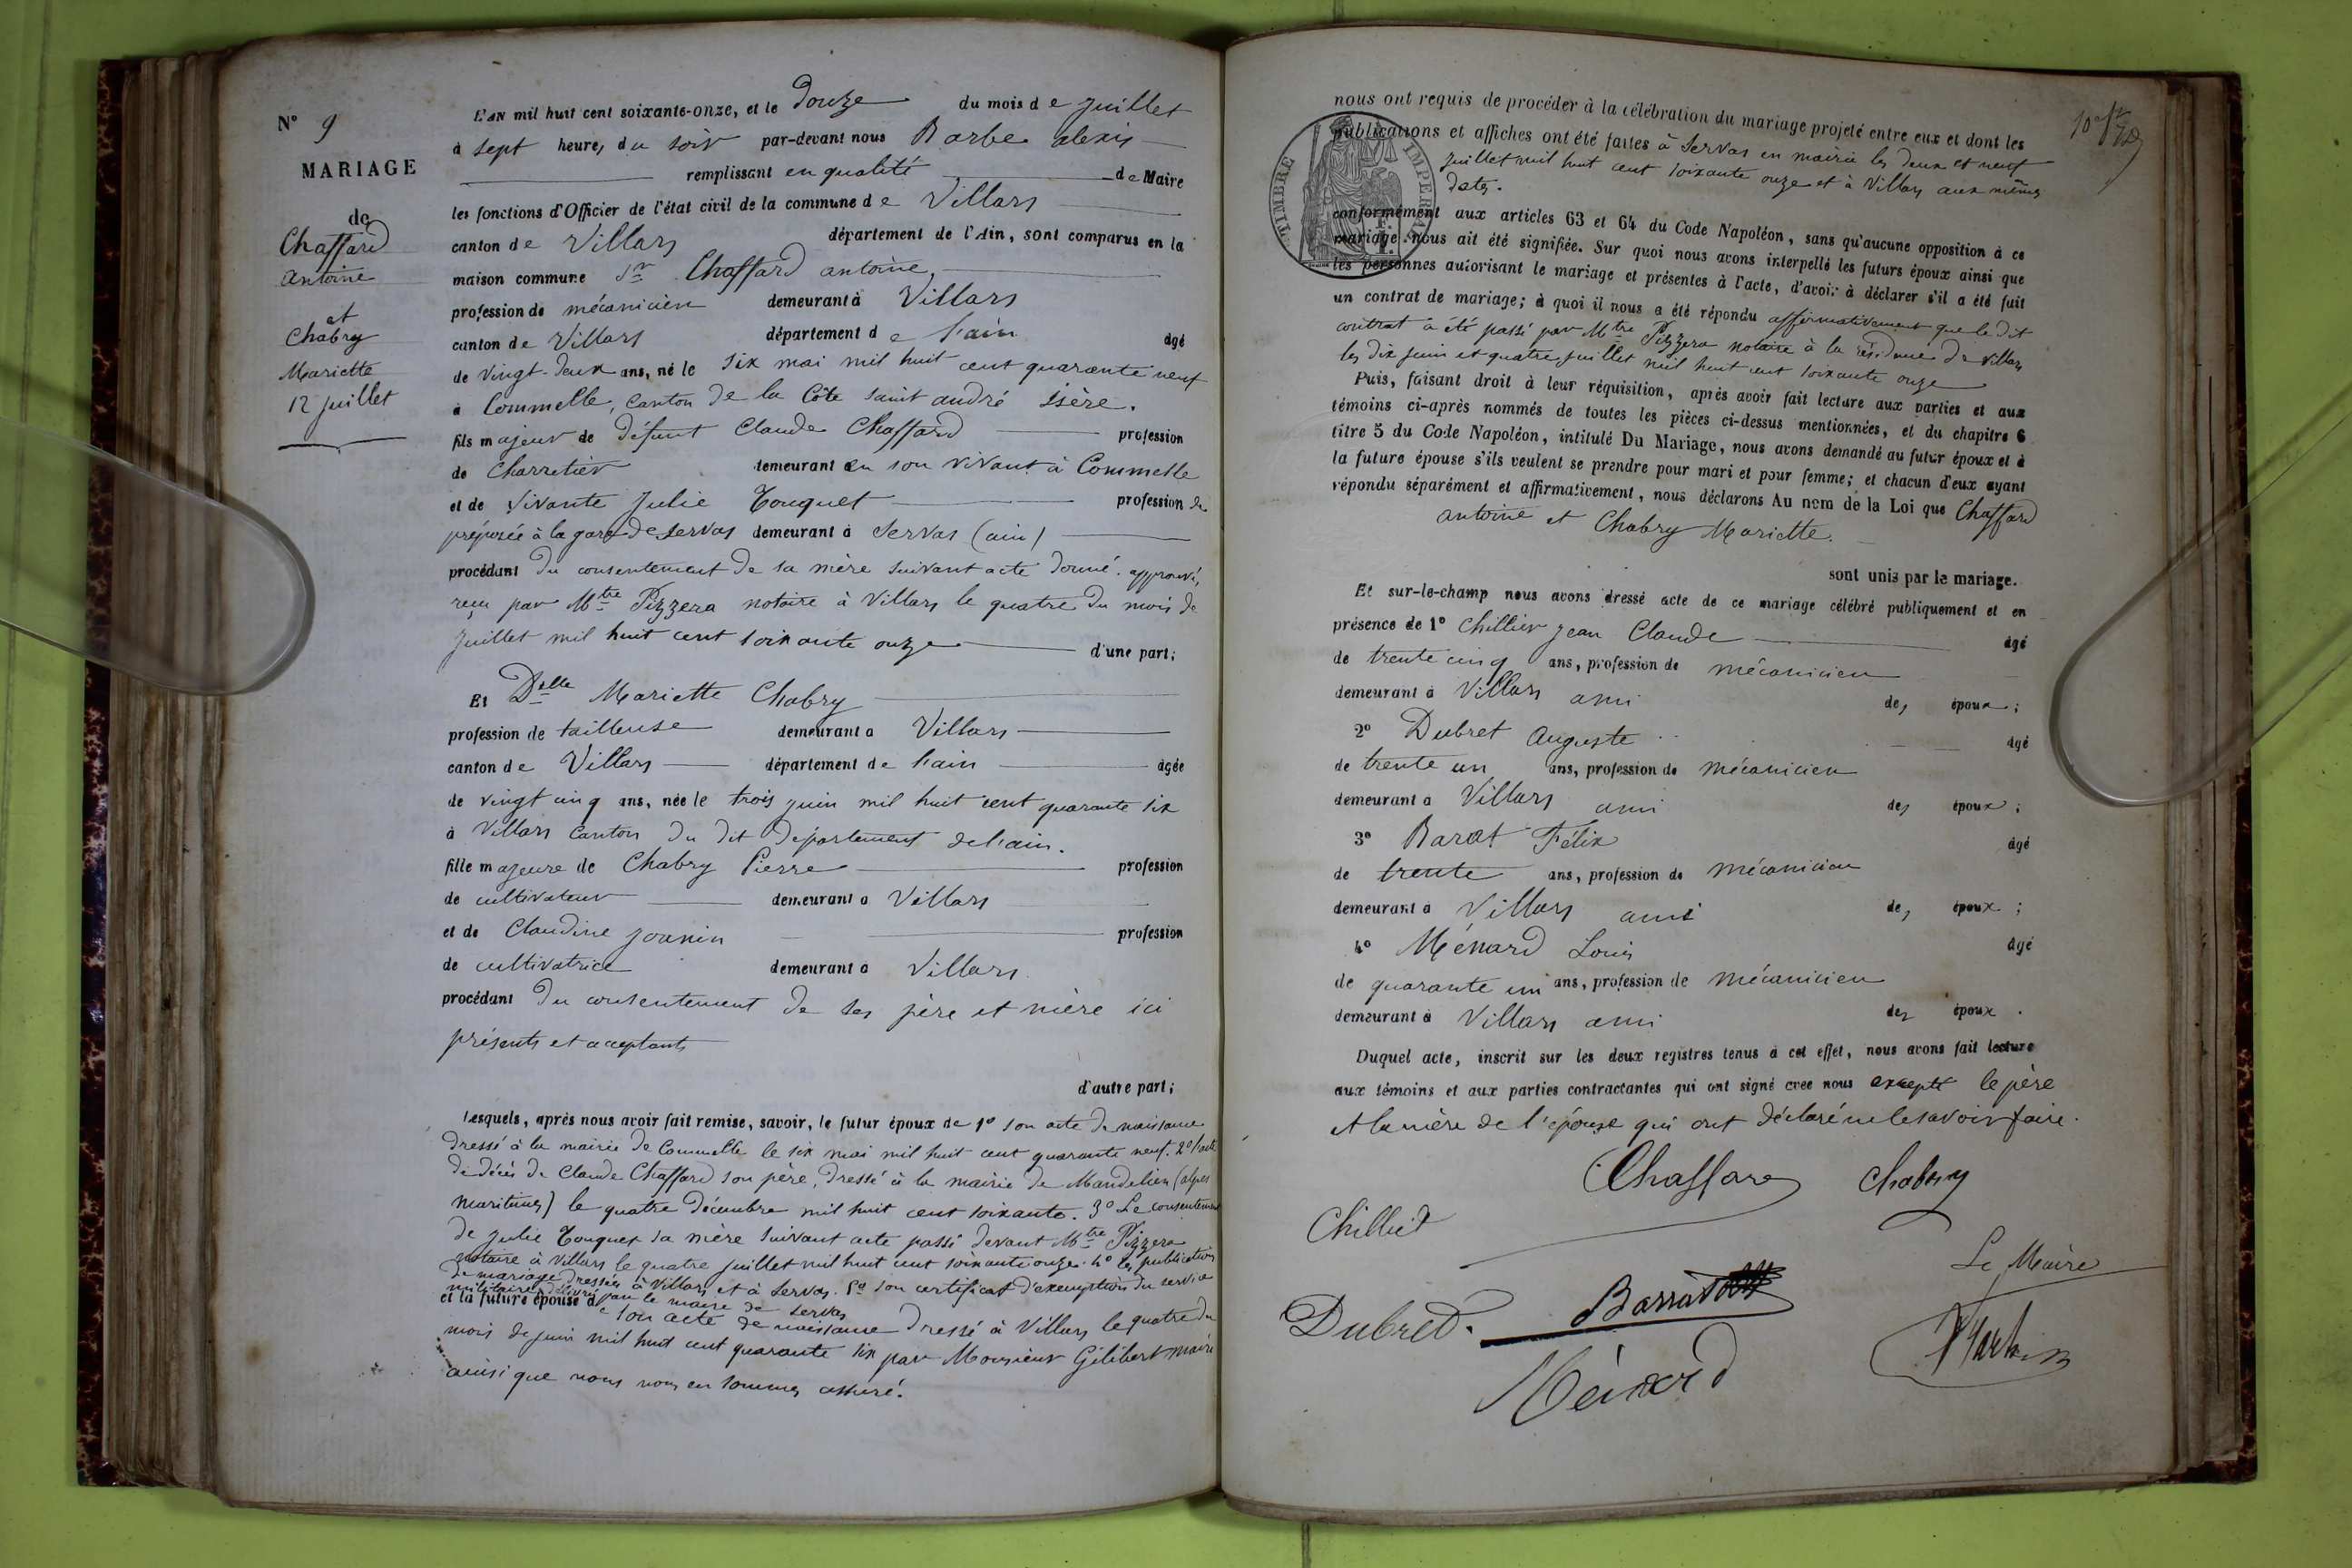 N° 9
MARIAGE
de
Chaffard
Antoine
et
Chabry
Mariette
12 juillet
L'AN mil huit cent soixante-onze, et le Douze du mois de juillet
à sept heures du soir par-devant nous Barbe alexis
remplissant en qualité de Maire
les fonctions d'Officier de l'état civil de la commune de Villars
canton de Villars département de l'Ain, sont comparus en la
maison commune Sr Chaffard antoine,
profession de mécanicien demeurant à Villars
canton de Villars département de l'ain âgé
de vingt-deux ans, né le six mai mil huit cent quarante neuf
à Commelle, canton de la Côte saint andré isère.
fils majeur de défunt Claude Chaffard profession
de charretier demeurant en son vivant à Commelle
et de vivante Julie Touquet profession de
préposée à la gare de servas demeurant à Servas (ain)
procédant du consentement de sa mère suivant acte donné. approuvé,
reçu par Mtre Pizzera notaire à Villars le quatre du mois de
juillet mil huit cent soixante onze d'une part;
Et Delle Mariette Chabry
profession de tailleuse demeurant à Villars
canton de Villars département de l'ain âgée
de vingt cinq ans, née le trois juin mil huit cent quarante six
à Villars canton du dit département de l'ain.
fille majeure de Chabry Pierre profession
de cultivateur demeurant à Villars
et de Claudine Joanin profession
de cultivatrice demeurant à Villars
procédant du consentement de ses père et mère ici
présents et acceptants
d'autre part;
Lesquels, après nous avoir fait remise, savoir, le futur époux de 1° son acte de naissance
dressé à la mairie de Commelle le six mai mil huit cent quarante neuf. 2° l'acte
de décès de Claude Chaffard son père, dressé à la mairie de Mandelieu (alpes
maritimes) le quatre décembre mil huit cent soixante. 3° Le consentement
de Julie Touquet sa mère suivant acte passé devant Mtre Pizzera
notaire à Villars le quatre juillet mil huit cent soixante onze. 4° les publications
de mariage dressées à Villars et à Servas. 5° son certificat d'exemption du service
militaire délivré par le maire de servas
et la future épouse de son acte de naissance dressé à Villars le quatre du
mois de juin mil huit cent quarante six par Monsieur Gilibert maire
ainsi que nous nous en sommes assuré.
nous ont requis de procéder à la célébration du mariage projeté entre eux et dont les
publications et affiches ont été faites à Servas en mairie les deux et neuf
juillet mil huit cent soixante onze et à Villars aux mêmes
dates.
TIMBRE IMPERIAL
conformément aux articles 63 et 64 du Code Napoléon, sans qu'aucune opposition à ce
mariage nous ait été signifiée. Sur quoi nous avons interpellé les futurs époux ainsi que
les personnes autorisant le mariage et présentes à l'acte, d'avoir à déclarer s'il a été fait
un contrat de mariage; à quoi il nous a été répondu affirmativement que le dit
contrat a été passé par Mtre Pizzera notaire à la résidence de Villars
les dix juin et quatre juillet mil huit cent soixante onze
Puis, faisant droit à leur réquisition, après avoir fait lecture aux parties et aux
témoins ci-après nommés de toutes les pièces ci-dessus mentionnées, et du chapitre 6
titre 5 du Code Napoléon, intitulé Du Mariage, nous avons demandé au futur époux et à
la future épouse s'ils veulent se prendre pour mari et pour femme; et chacun d'eux ayant
répondu séparément et affirmativement, nous déclarons Au nom de la Loi que Chaffard
antoine et Chabry Mariette.
sont unis par le mariage.
Et sur-le-champ nous avons dressé acte de ce mariage célébré publiquement et en
présence de 1° Chillier Jean Claude âgé
de trente cinq ans, profession de mécanicien
demeurant à Villars ami des époux;
2° Dubret Auguste âgé
de trente un ans, profession de mécanicien
demeurant à Villars ami des époux;
3° Barat Félix âgé
de trente ans, profession de mécanicien
demeurant à Villars ami des époux;
4° Ménard Louis âgé
de quarante un ans, profession de mécanicien
demeurant à Villars ami des époux.
Duquel acte, inscrit sur les deux registres tenus à cet effet, nous avons fait lecture
aux témoins et aux parties contractantes qui ont signé avec nous excepté le père
et la mère de l'épouse qui ont déclaré ne le savoir faire.
Chaffard Chabry
Chilliet
Le Maire
Dubret. Barrat
Ménard